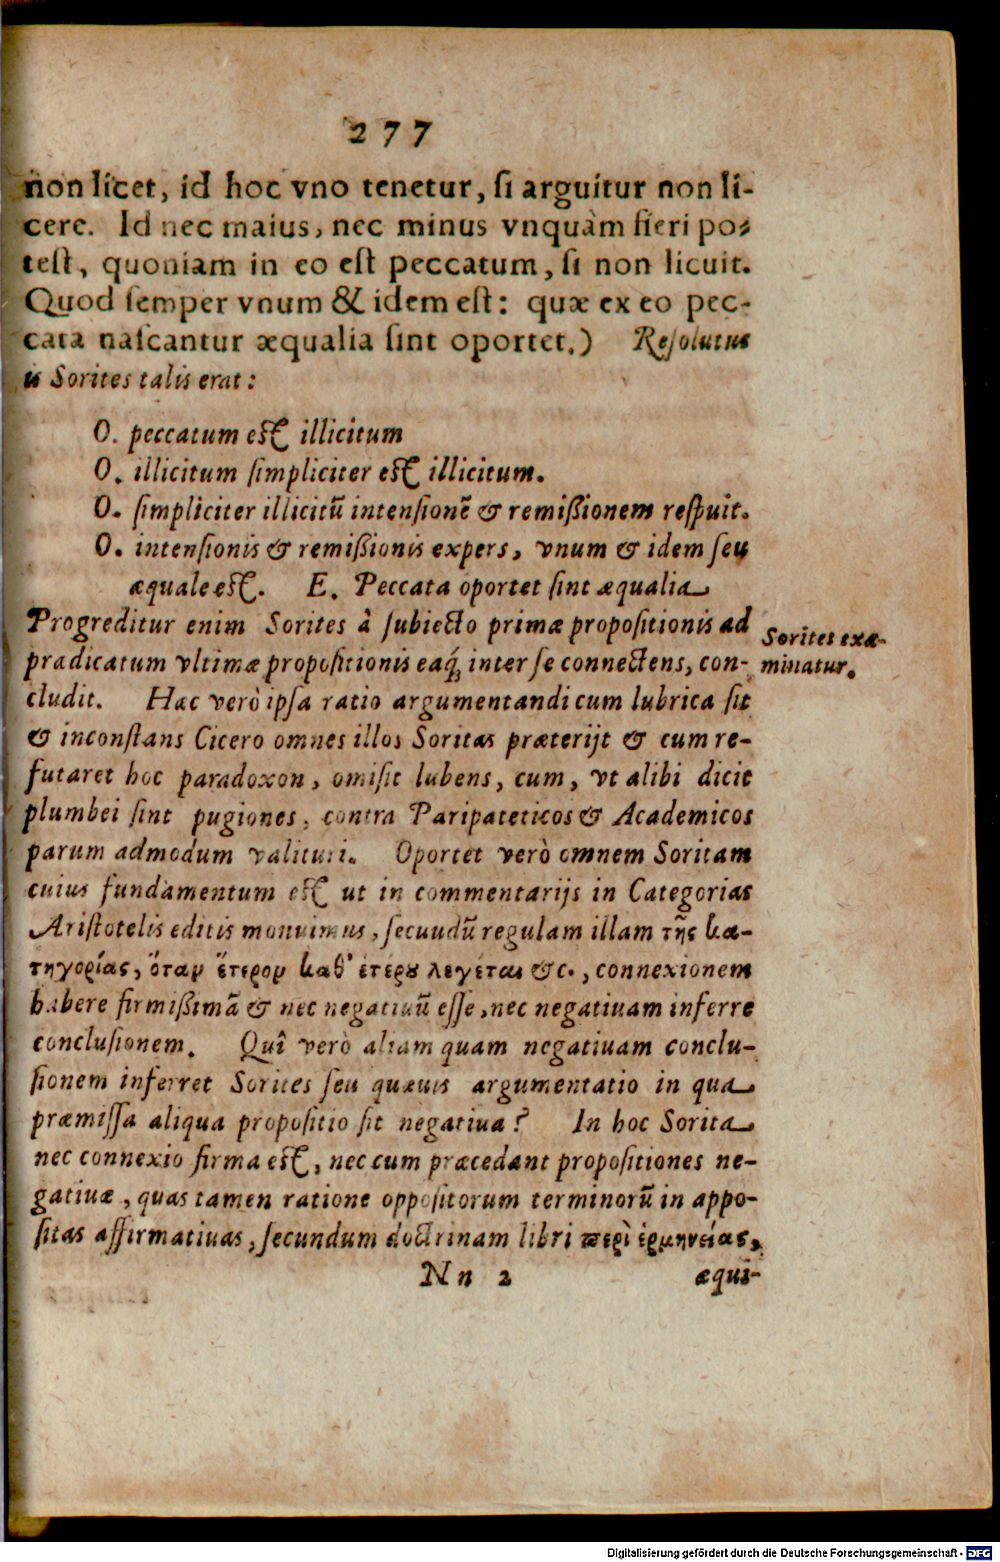 277
non licet, id hoc vno tenetur, ſi arguitur non li-
cere. Id nec maius, nec minus vnquàm fieri po-
teſt, quoniam in eo eſt peccatum, ſi non licuit.
Quod ſemper vnum & idem eſt: quæ ex eo pec-
cata naſcantur æqualia ſint oportet.) Reſolutus
is Sorites talis erat:
O. peccatum eſt illicitum
O. illicitum ſimpliciter eſt illicitum.
O. ſimpliciter illicitū intenſionē & remiſſionem reſpuit.
O. intenſionis & remiſſionis expers, vnum & idem ſeu
æquale eſt. E. Peccata oportet ſint æqualia
Progreditur enim Sorites à ſubiecto primæ propoſitionis ad
prædicatum vltimæ propoſitionis eaq́ inter ſe connectens, con-
cludit. Hac verò ipſa ratio argumentandi cum lubrica ſit
& inconſtans Cicero omnes illos Soritas præterijt & cum re-
futaret hoc paradoxon, omiſit lubens, cum, vt alibi dicit
plumbei ſint pugiones, contra Paripateticos & Academicos
parum admodum valituri. Oportet verò omnem Soritam
cuius fundamentum eſt ut in commentarijs in Categorias
Ariſtotelis editis monuimus, ſecuudū regulam illam τῆς κα-
τηγορίας, ὅταν ἕτερον καθ' ἑτέρου λεγέται &c., connexionem
habere firmiſſimā & nec negatiuū eſſe, nec negatiuam inferre
concluſionem. Quî verò aliam quam negatiuam conclu-
ſionem inferret Sorites ſeu quæuis argumentatio in qua
præmiſſa aliqua propoſitio ſit negatiua? In hoc Sorita
nec connexio firma eſt, nec cum præcedant propoſitiones ne-
gatiuæ, quas tamen ratione oppoſitorum terminorū in appo-
ſitas affirmatiuas, ſecundum doctrinam libri περὶ ἑρμηνείας,
Nn 2 æqui-
Sorites exa-
minatur.
Digitalisierung gefördert durch die Deutsche Forschungsgemeinschaft - DFG